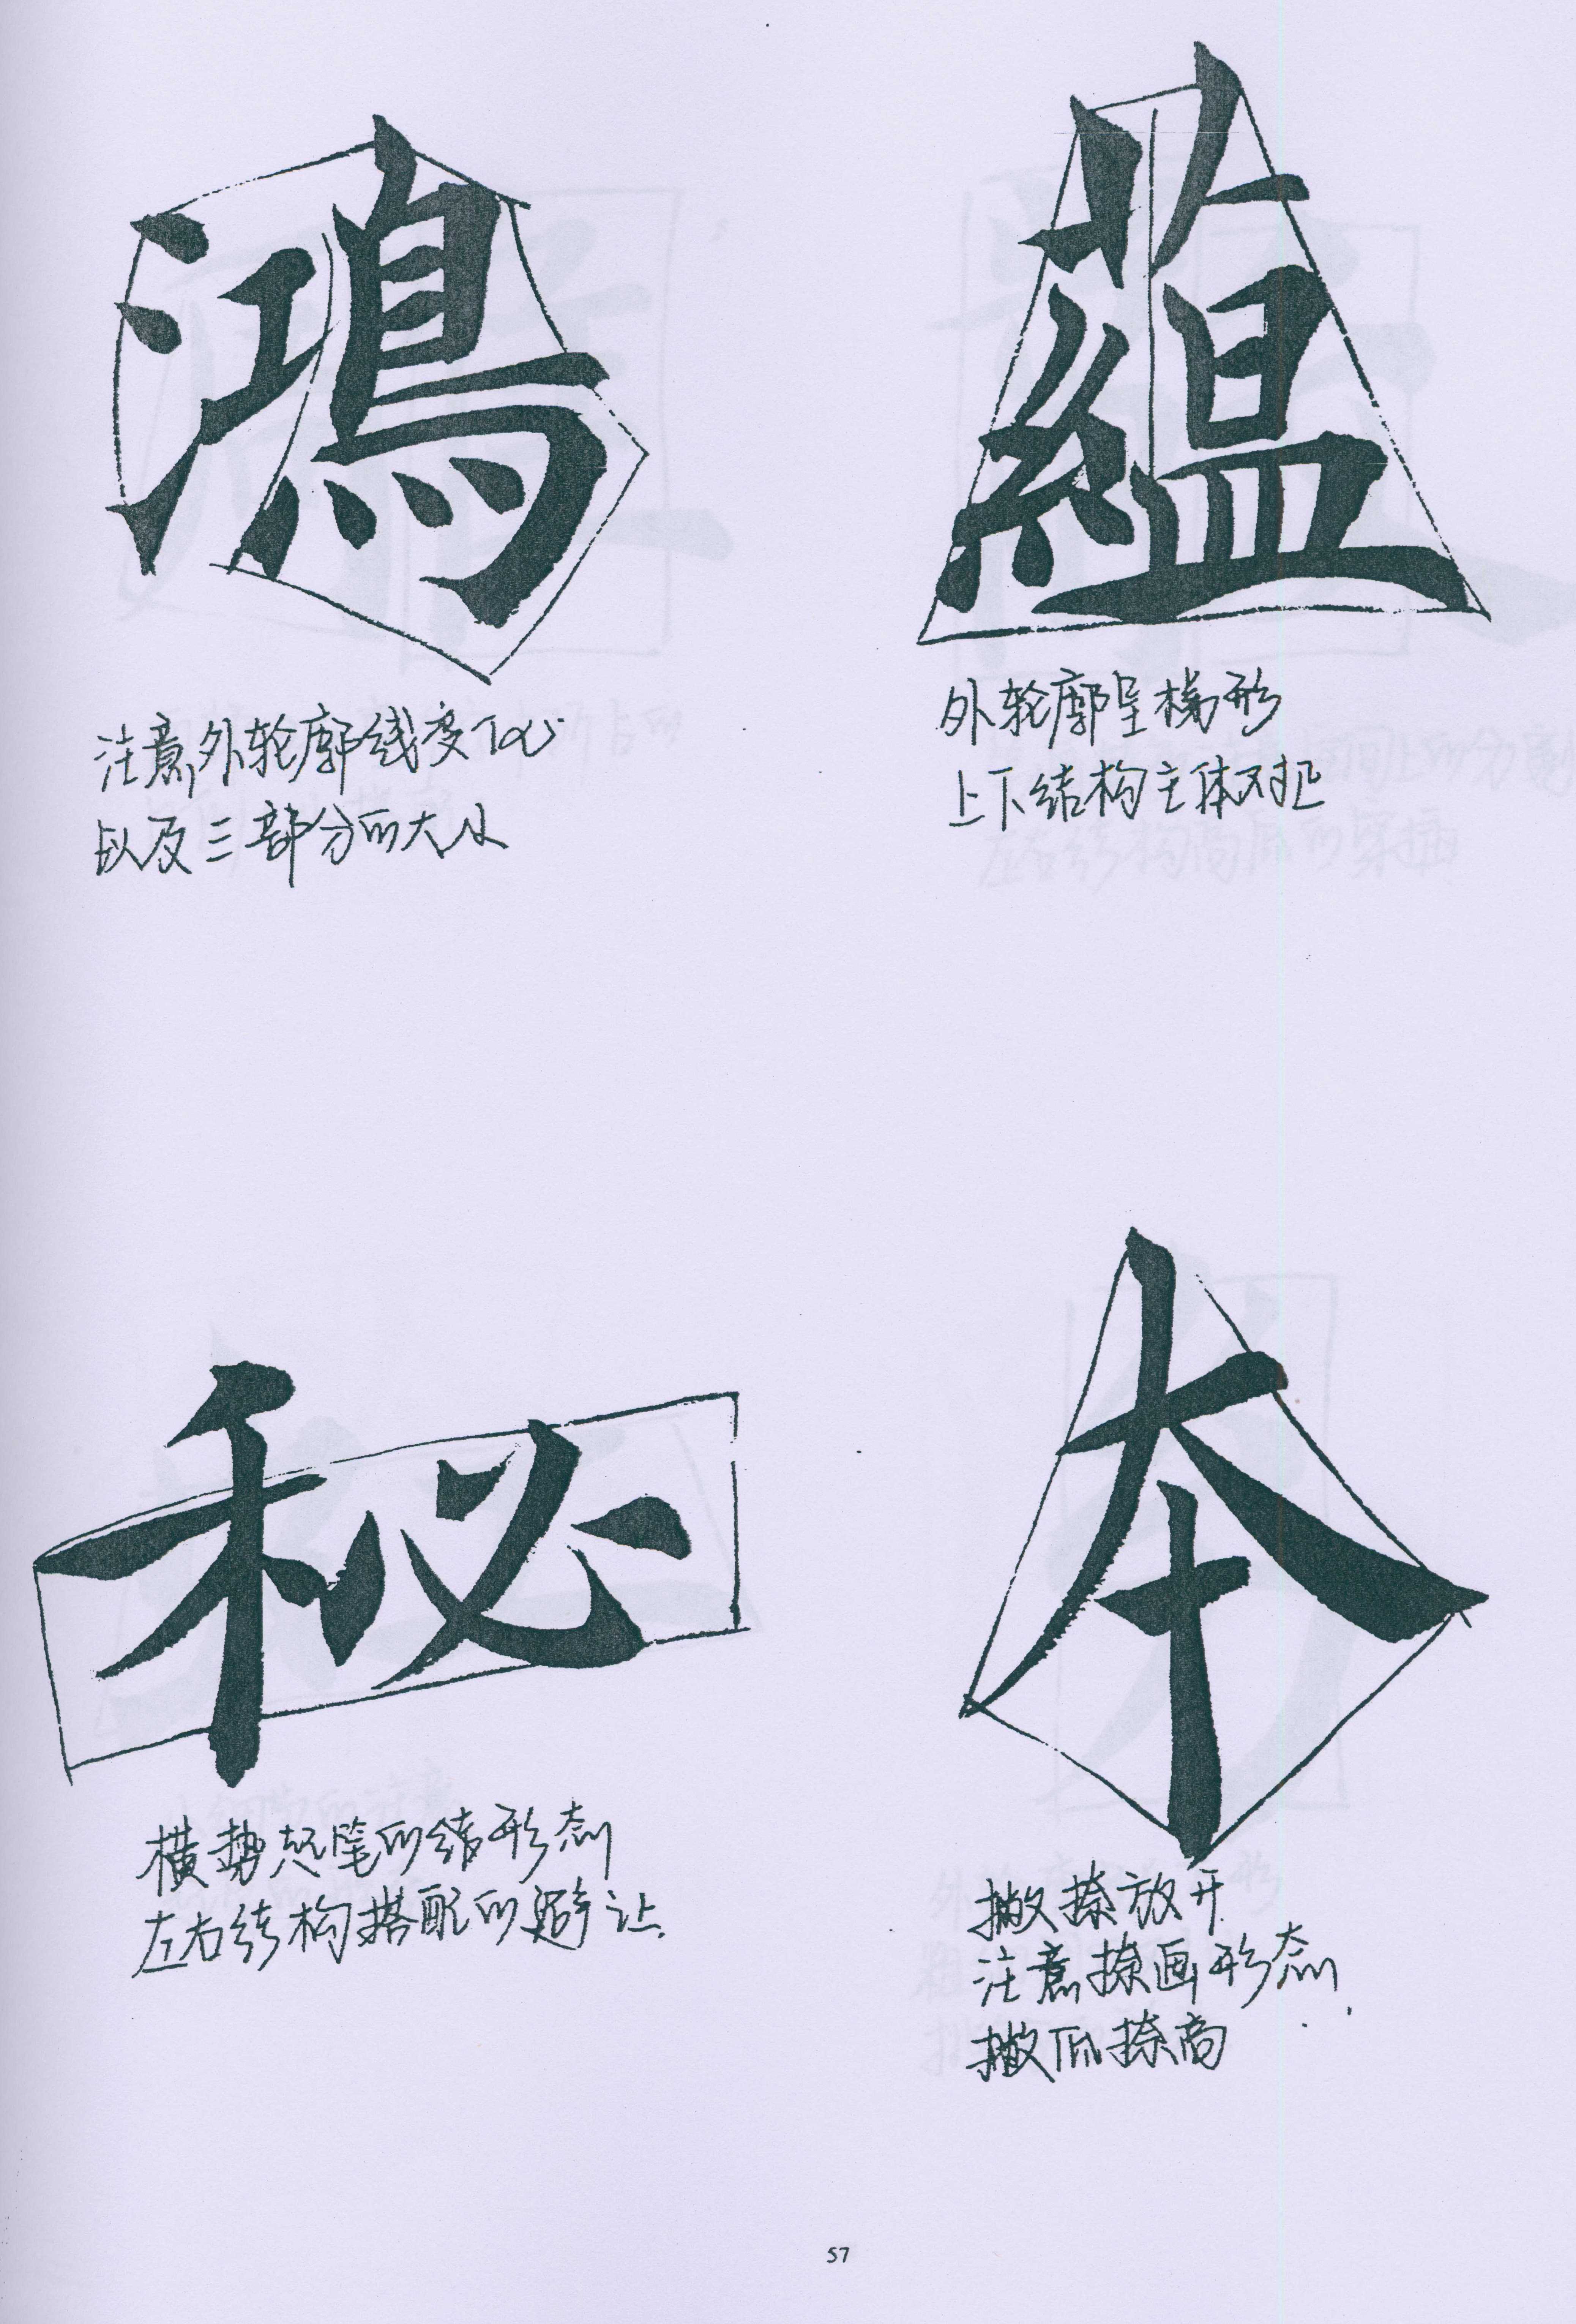 鴻
注意外轮廓线变化
以及三部分的大小
蕴
外轮廓呈梯形
上下结构主体对正
秘
横势起笔的结形态
左右结构搭配的避让
本
撇捺放开
注意捺画形态
撇低捺高
57